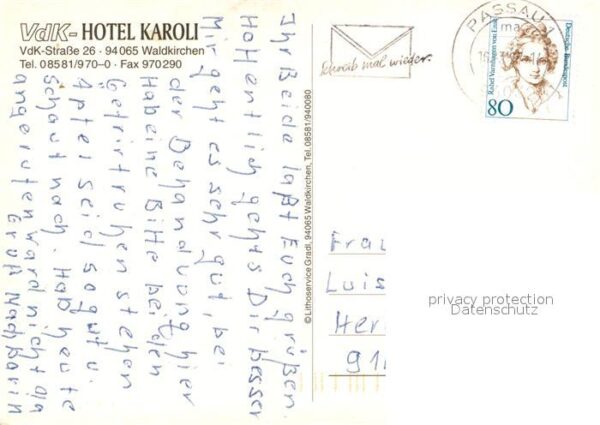 VdK- HOTEL KAROLI
VdK-Straße 26 · 94065 Waldkirchen
Tel. 08581/970-0 · Fax 970290
Ihr Beide laßt Euch grüßen.
Hoffentlich gehts Dir besser
Mir geht es sehr gut, bei
der Behandlung hier
Hab eine Bitte bei den
Gefriertruhen stehen
Äpfel seid so gut u.
schaut nach. Hab heute
angerufen ward nicht da
Gruß Nachbarin
© Lithoservice Gradl, 94065 Waldkirchen, Tel. 08581/940080
Schreib mal wieder.
PASSAU
Deutsche Bundespost
Rahel Varnhagen von Ense
80
Frau
Luis
Her
91
privacy protection
Datenschutz